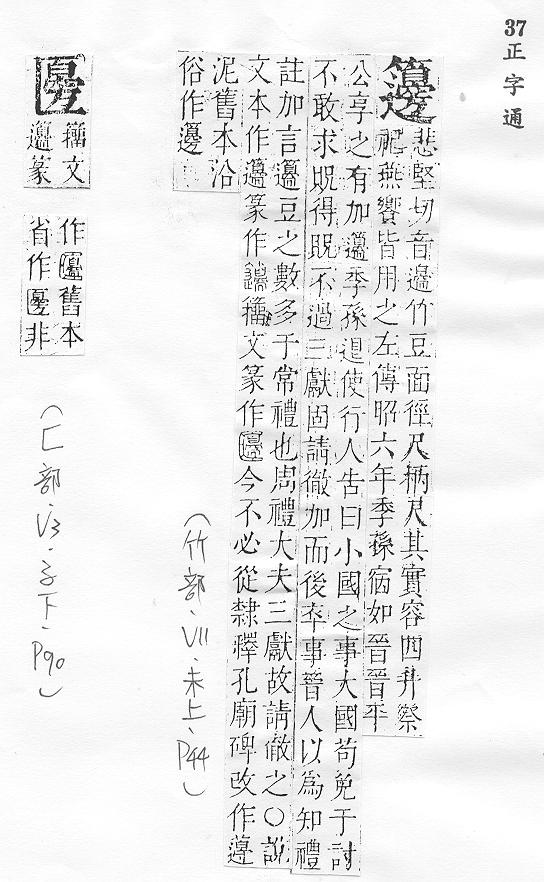 37
正字通
籩
悲堅切音邊竹豆面徑尺柄尺其實容四升祭
祀燕饗皆用之左傳昭六年季孫宿如晉晉平
公享之有加籩季孫退使行人告曰小國之事大國苟免于討
不敢求貺得貺不過三獻固請徹加而後卒事晉人以爲知禮
註加言籩豆之數多于常禮也周禮大夫三獻故請徹之○說
文本作籩篆作籩籒文篆作𠥱今不必從隸釋孔廟碑改作籩
泥舊本沿
俗作籩
(竹部·VII·未上·P44)
𠥱
籒文
籩篆
作𠥱舊本
省作𠥱非
(匚部·V3·子下·P90)